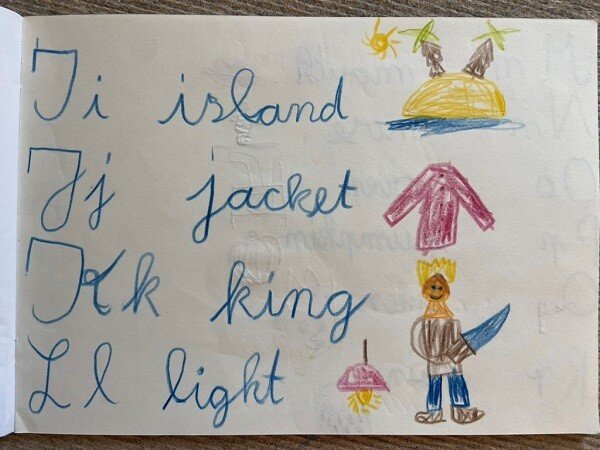 I i island
J j jacket
K k king
L l light